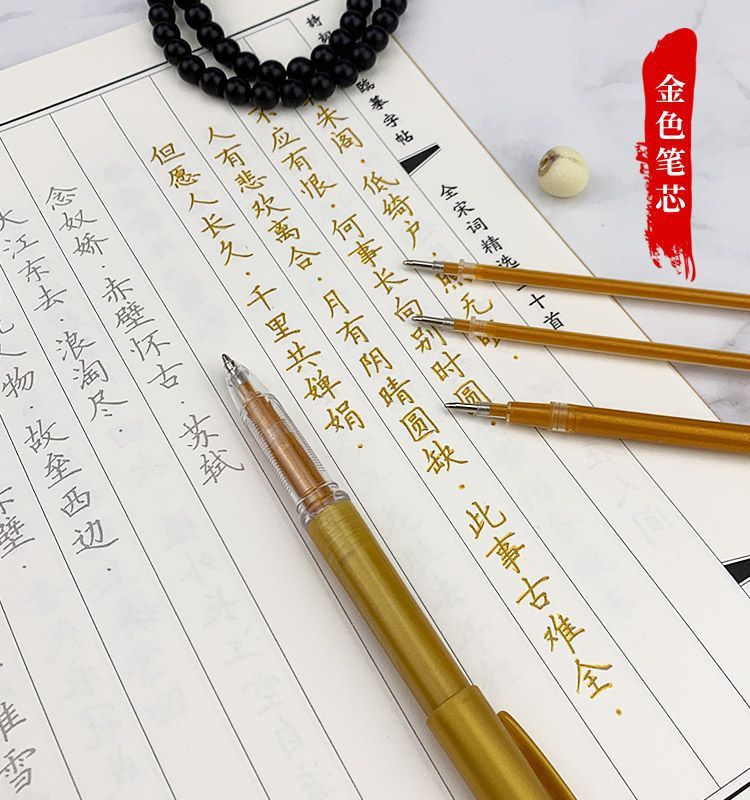 金色笔芯
臨摹字帖
全宋词精选十首
朱阁·低绮户·照无
不应有恨·何事长向别时圆·
人有悲欢离合·月有阴晴圆缺·此事古难全·
但愿人长久·千里共婵娟·
念奴娇·赤壁怀古·苏轼
大江东去·浪淘尽·
人物·故垒西边·
壁·
堆雪